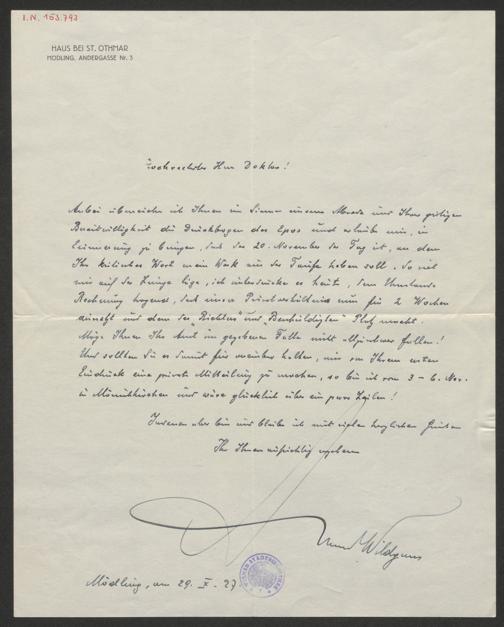 I.N. 153.793
HAUS BEI ST. OTHMAR
MÖDLING, ANDERGASSE Nr. 3
Hochverehrter Herr Doktor!
Anbei überreiche ich Ihnen im Sinne unserer und Ihrer gütigen
Bereitwilligkeit die Druckbogen des Epos und erlaube mir, in
Erinnerung zu bringen, daß der 20. November der Tag ist, an dem
Ihr kritisches Wort mein Werk aus der Taufe heben soll. So viel
mir auf der Zunge läge, ich unterdrücke es heute, dem Umstande
Rechnung tragend, daß unser Privatverhältnis nun für 2 Wochen
dem des "Richters" und "Beschuldigten" Platz macht.
Möge Ihnen Ihr Amt im gegebenen Falle nicht allzu schwer fallen!
Und sollten Sie es damit für vereinbar halten, mir von Ihrem ersten
Eindruck eine private Mitteilung zu machen, so bin ich vom 3 - 6. Nov.
in Mönichkirchen und wäre glücklich über ein paar Zeilen!
Indessen aber bin und bleibe ich mit vielen herzlichen Grüßen
Ihr Ihnen aufrichtig ergebener
Anton Wildgans
Mödling, am 29. X. 27